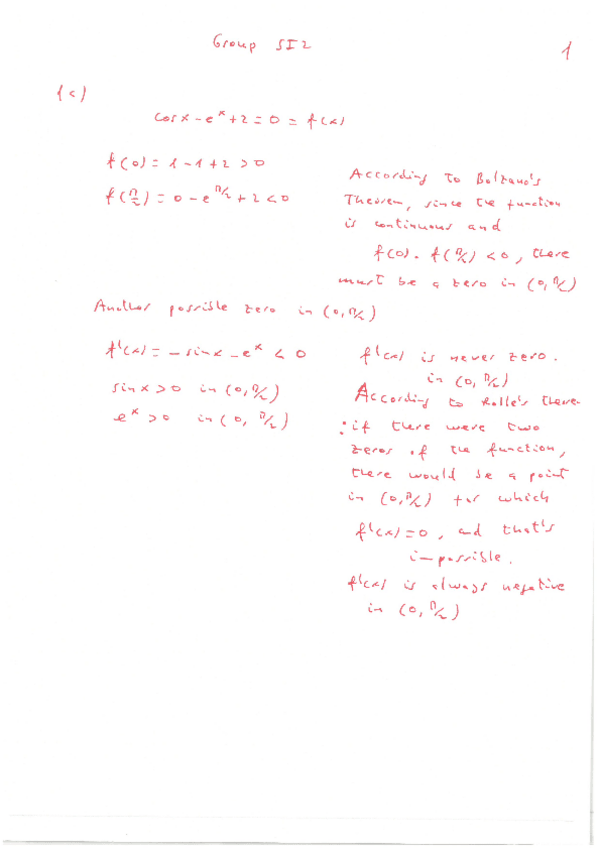 Group SI2
1
1c)
cos x - e^x + 2 = 0 = f(x)
f(0) = 1 - 1 + 2 > 0
f(π/2) = 0 - e^π/2 + 2 < 0
According to Bolzano's
Theorem, since the function
is continuous and
f(0). f(π/2) < 0, there
must be a zero in (0, π/2)
Another possible zero in (0, π/2)
f'(x) = - sin x - e^x < 0
sin x > 0 in (0, π/2)
e^x > 0 in (0, π/2)
f'(x) is never zero.
in (0, π/2)
According to Rolle's theo-
: if there were two
zeros of the function,
there would be a point
in (0, π/2) for which
f'(x) = 0, and that's
impossible.
f'(x) is always negative
in (0, π/2)